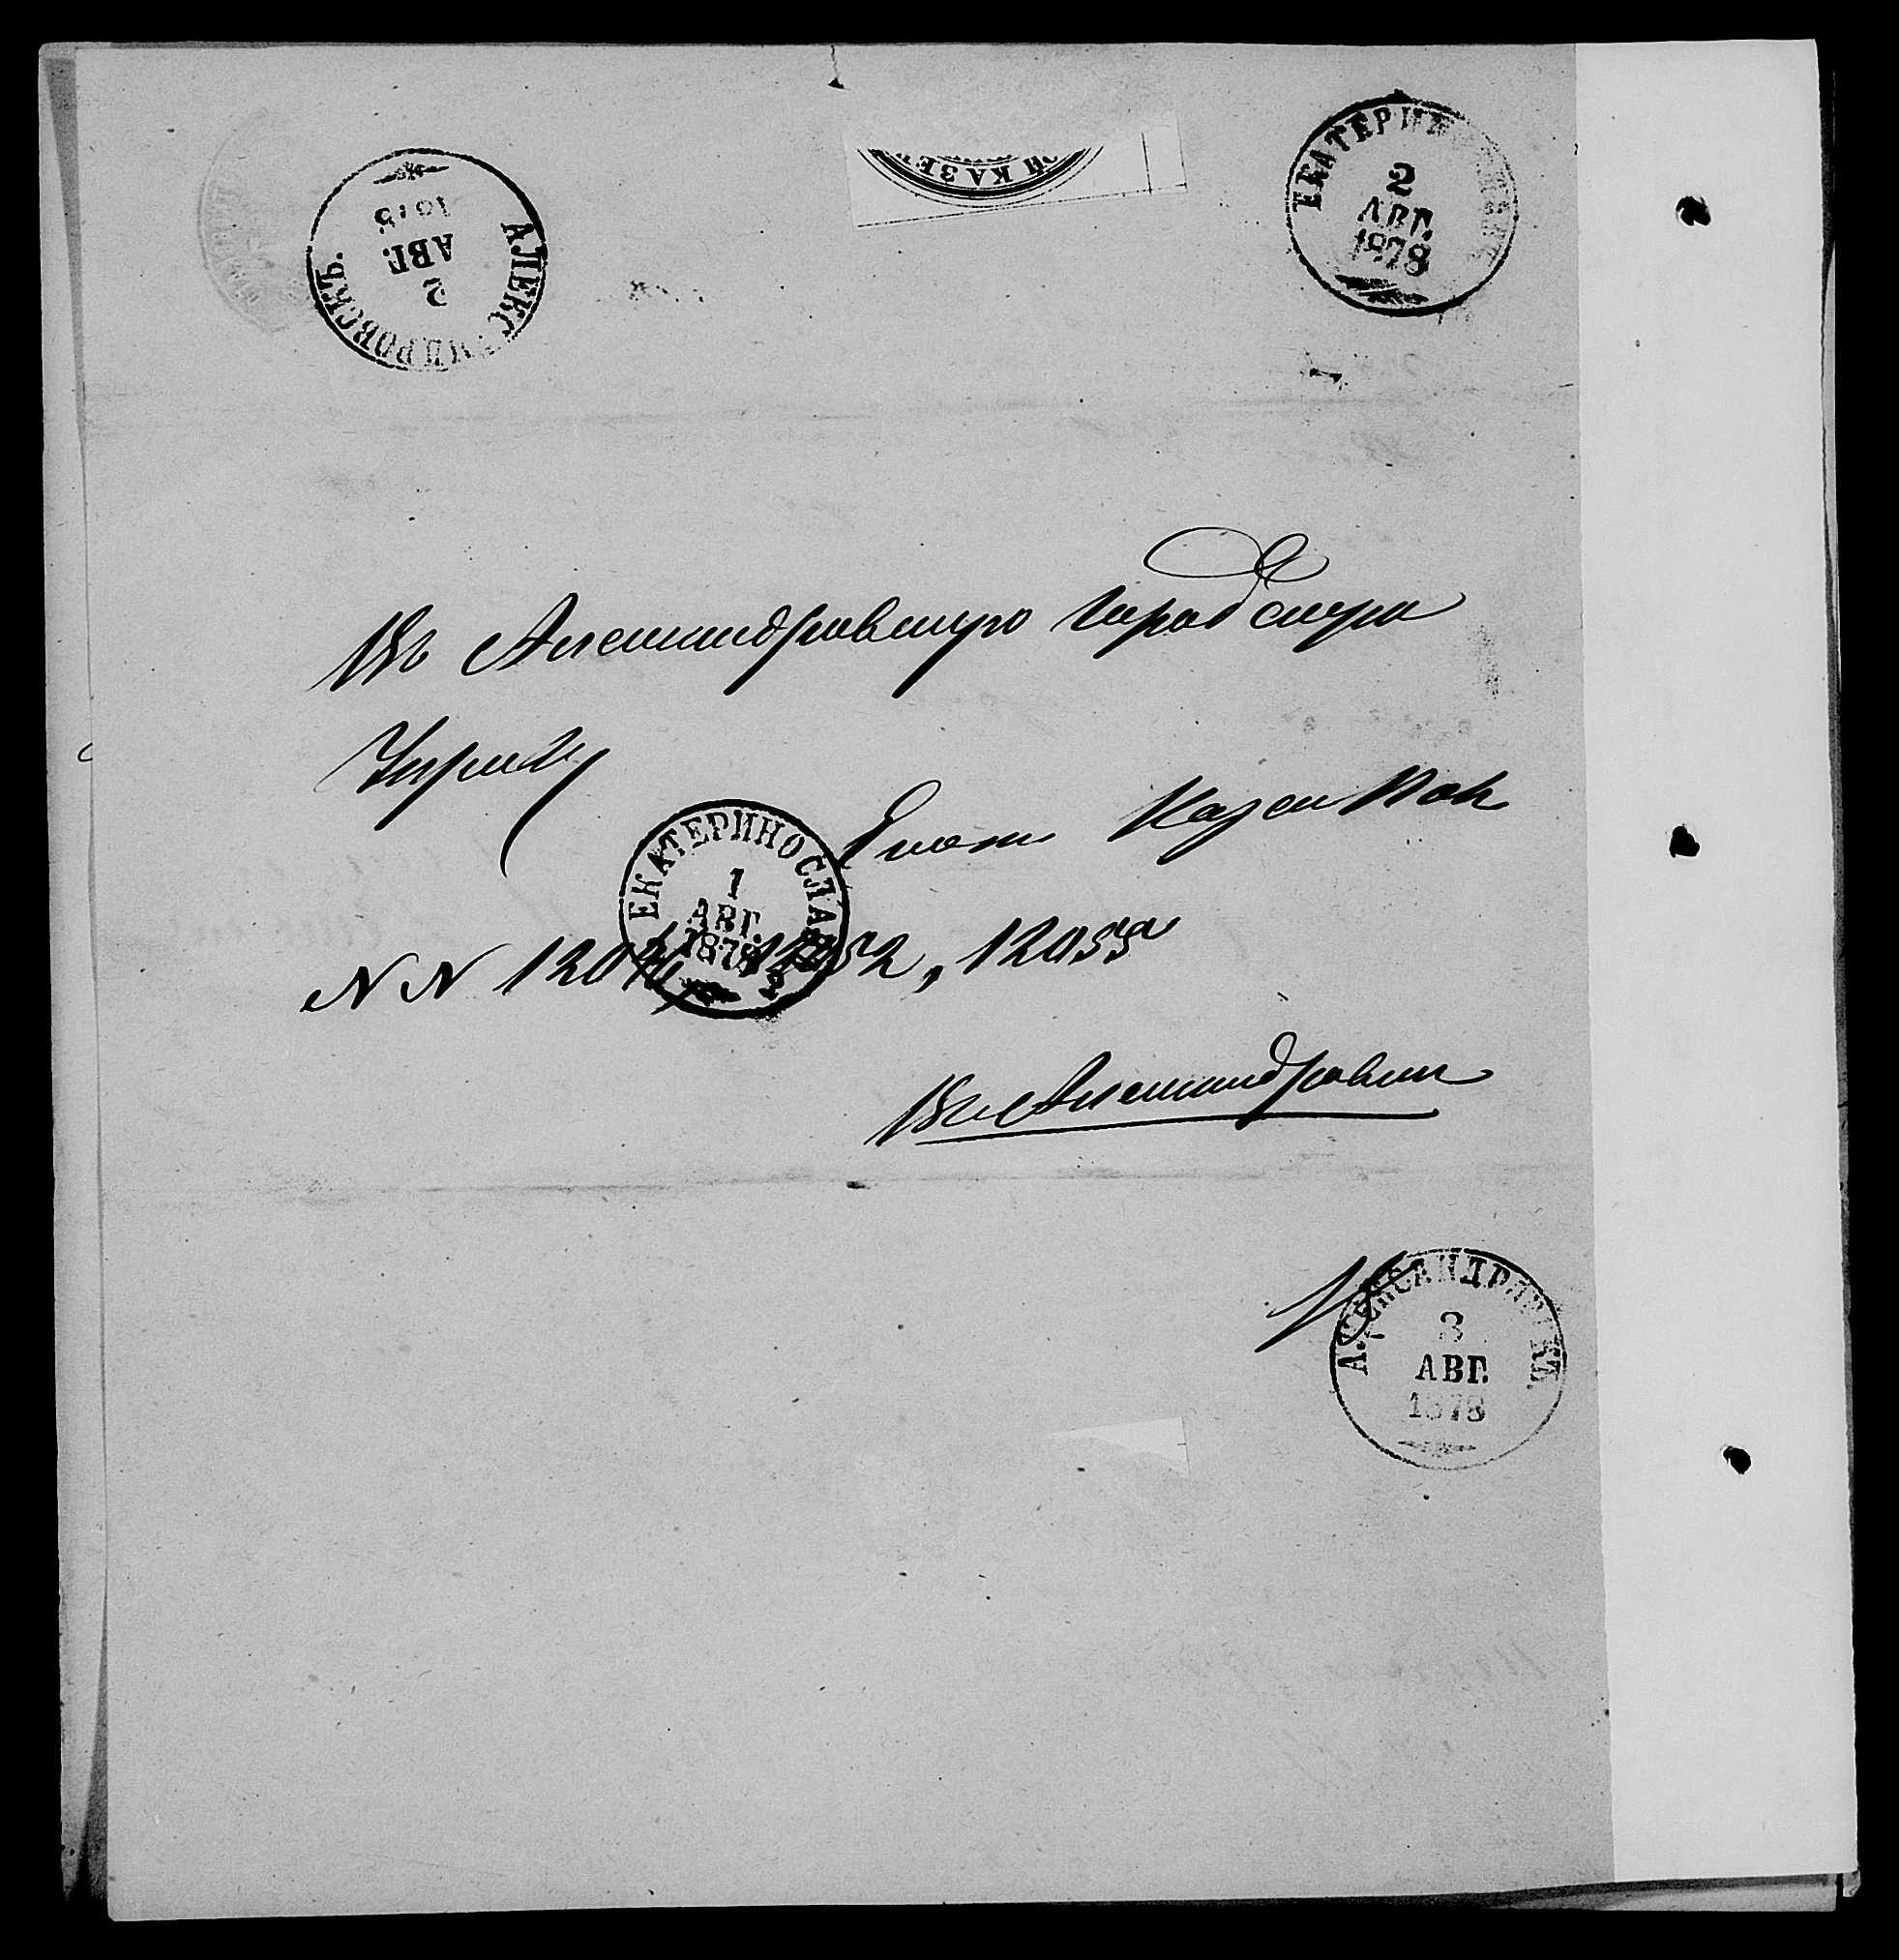 АЛЕКСАНДРОВСКЪ.
2
АВГ.
1878
ОЙ КАЗЕ
ЕКАТЕРИНОСЛАВ
2
АВГ.
1878
Въ Александровскую Городскую
Управу
Казен Пал
ЕКАТЕРИНОСЛАВ
1
АВГ.
1878
N N 12052, 12055
Въ Александровск
АЛЕКСАНДРОВСКЪ.
3
АВГ.
1878